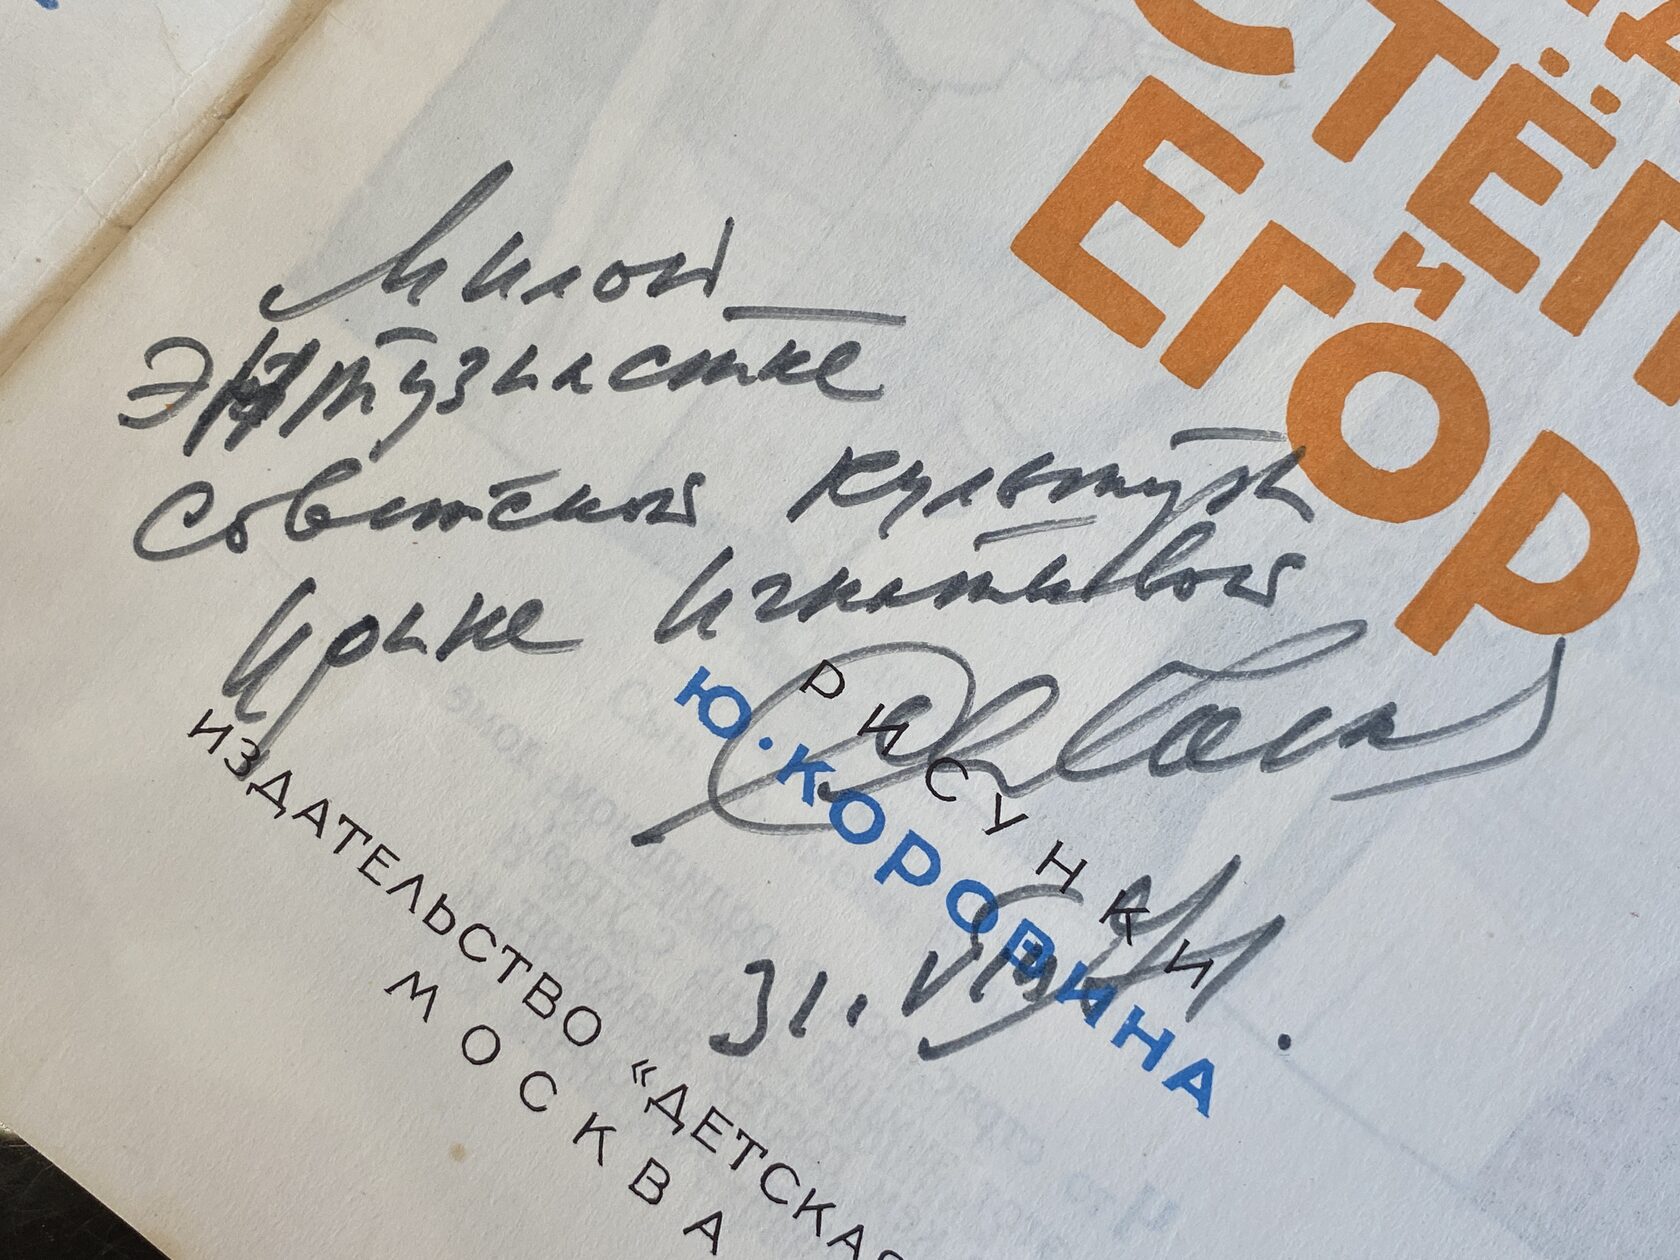 СТЁП
и
ЕГОР
Милой
Энтузиастке
Советской культуры
Ирине Игнатьевой
31.
РИСУНКИ
Ю. КОРОВИНА
ИЗДАТЕЛЬСТВО «ДЕТСКАЯ
МОСКВА